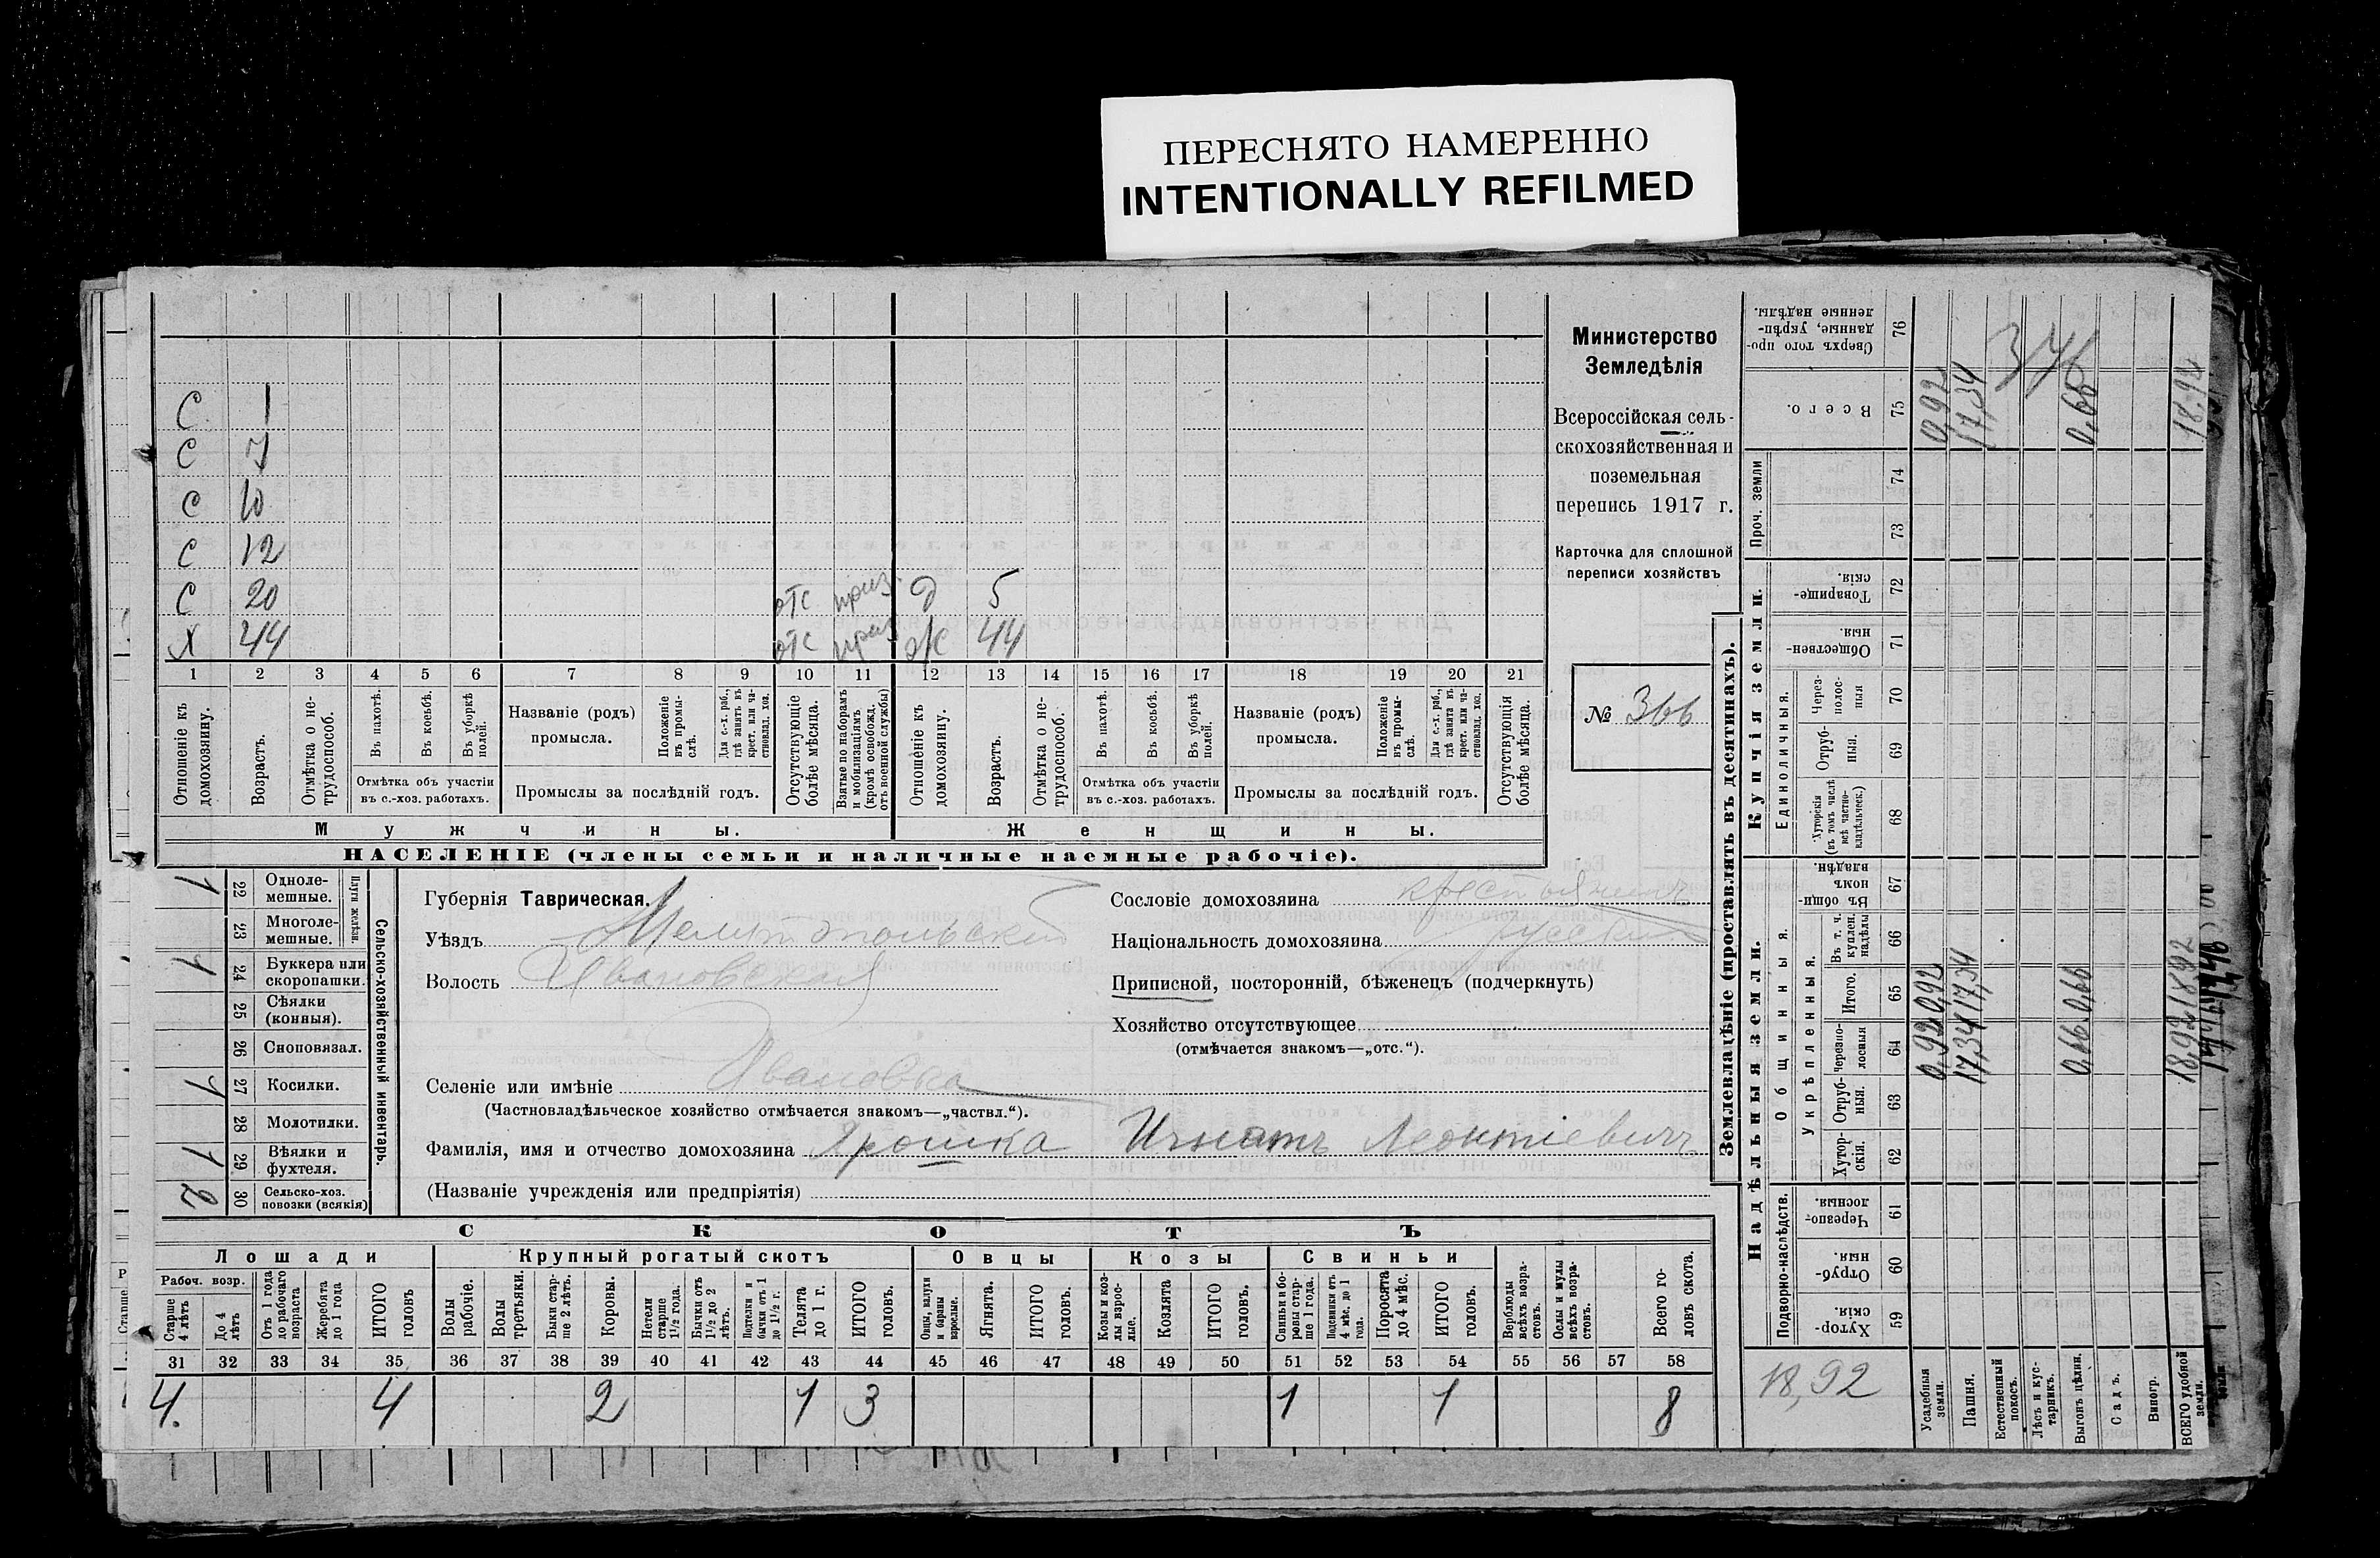 ПЕРЕСНЯТО НАМЕРЕННО
INTENTIONALLY REFILMED
С 1
С 7
С 10
С 12
С 20 отс приз д 5
Х 44 отс приз ж 44
1 2 3 4 5 6 7 8 9 10 11 12 13 14 15 16 17 18 19 20 21
Отношеніе къ домохозяину.
Возрастъ.
Отмѣтка о нетрудоспособ.
Въ пахотѣ.
Въ косьбѣ.
Въ уборкѣ полей.
Отмѣтка объ участіи въ с.-хоз. работахъ.
Названіе (родъ) промысла.
Положеніе въ промыслѣ.
Для с.-х. раб., гдѣ занятъ въ крест. или частновлад. хоз.
Промыслы за послѣдній годъ.
Отсутствующіе болѣе мѣсяца.
Взятые по наборамъ и мобилизаціямъ (кромѣ освобожд. отъ военной службы)
Отношеніе къ домохозяину.
Возрастъ.
Отмѣтка о нетрудоспособ.
Въ пахотѣ.
Въ косьбѣ.
Въ уборкѣ полей.
Отмѣтка объ участіи въ с.-хоз. работахъ.
Названіе (родъ) промысла.
Положеніе въ промыслѣ.
Для с.-х. раб., гдѣ занята въ крест. или частновлад. хоз.
Промыслы за послѣдній годъ.
Отсутствующія болѣе мѣсяца.
Мужчины. Женщины.
НАСЕЛЕНІЕ (члены семьи и наличные наемные рабочіе).
Министерство
Земледѣлія
Всероссійская сель-
скохозяйственная и
поземельная
перепись 1917 г.
Карточка для сплошной
переписи хозяйствъ
№ 366
1 22 Одноле-мешные.
23 Многоле-мешные.
Плуги желѣзн.
1 24 Буккера или скоропашки.
25 Сѣялки (конныя).
26 Сноповязал.
1 27 Косилки.
28 Молотилки.
1 29 Вѣялки и фухтеля.
2 30 Сельско-хоз. повозки (всякія)
Сельско-хозяйственный инвентарь.
Губернія Таврическая.
Уѣздъ Мелитопольскій
Волость Ивановская
Селеніе или имѣніе Ивановка
(Частновладѣльческое хозяйство отмѣчается знакомъ—„частвл.“).
Фамилія, имя и отчество домохозяина Ярошка Игнатъ Леонтіевичъ
(Названіе учрежденія или предпріятія)
Сословіе домохозяина крестьянинъ
Національность домохозяина русскій
Приписной, посторонній, бѣженецъ (подчеркнуть)
Хозяйство отсутствующее
(отмѣчается знакомъ—„отс.“).
СКОТЪ
Лошади Крупный рогатый скотъ Овцы Козы Свиньи
Рабоч. возр.
Старше 4 лѣтъ
До 4 лѣтъ
Отъ 1 года до рабочаго возраста
Жеребята до 1 года
ИТОГО головъ
Волы рабочіе.
Волы третьяки.
Быки старше 2 лѣтъ.
Коровы.
Нетели старше 1½ года.
Бычки отъ 1½ до 2 лѣтъ.
Подтелки и бычки отъ 1 до 1½ г.
Телята до 1 г.
ИТОГО головъ.
Овцы, валухи и бараны взрослые.
Ягнята.
ИТОГО головъ.
Козы и козлы взрослые.
Козлята
ИТОГО головъ.
Свиньи и боровы старше 1 года.
Подсвинки отъ 4 мѣс. до 1 года.
Поросята до 4 мѣс.
ИТОГО головъ.
Верблюды всѣхъ возрастовъ.
Ослы и мулы всѣхъ возрастовъ.
Всего головъ скота.
31 32 33 34 35 36 37 38 39 40 41 42 43 44 45 46 47 48 49 50 51 52 53 54 55 56 57 58
4. 4 2 1 3 1 1 8
Землевладѣніе (проставлять въ десятинахъ).
Купчія земли.
Надѣльныя земли.
Сверхъ того проданные, укрѣпленные надѣлы. 76
Всего. 75 0,92 17,34 0,66 18,92
376
Проч. земли 74 73
Товарищескія. 72
Общественныя. 71
Единоличныя.
Черезполосныя 70
Отрубныя. 69
Хуторскія (въ томъ числѣ всѣ частновладѣльческ.) 68
Общинныя.
Въ общинномъ владѣн. 67
Укрѣпленныя.
Въ т. ч. куплен. надѣлы 66
Итого. 65 0,92 17,34 0,66 18,92
Черезполосныя 64 0,92 17,34 0,66 18,92
Отрубныя. 63
Хуторскія. 62
Подворно-наслѣдств.
Черезполосныя. 61
Отрубныя. 60
Хуторскія. 59
18,92
Усадебныя земли.
Пашня.
Естественный покосъ.
Лѣсъ и кустарникъ.
Выгонъ цѣлин.
Садъ.
Виногр.
ВСЕГО удобной земли.